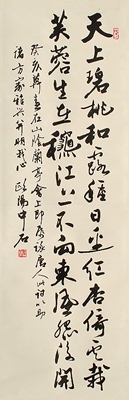 天上碧桃和露種日邊紅杏倚雲栽
芙蓉生在龝江上不向東風怨後開
癸亥暮春在山陰蘭亭會上即席詠唐人此詩以助
諸方家雅興并明我心 歐陽中石